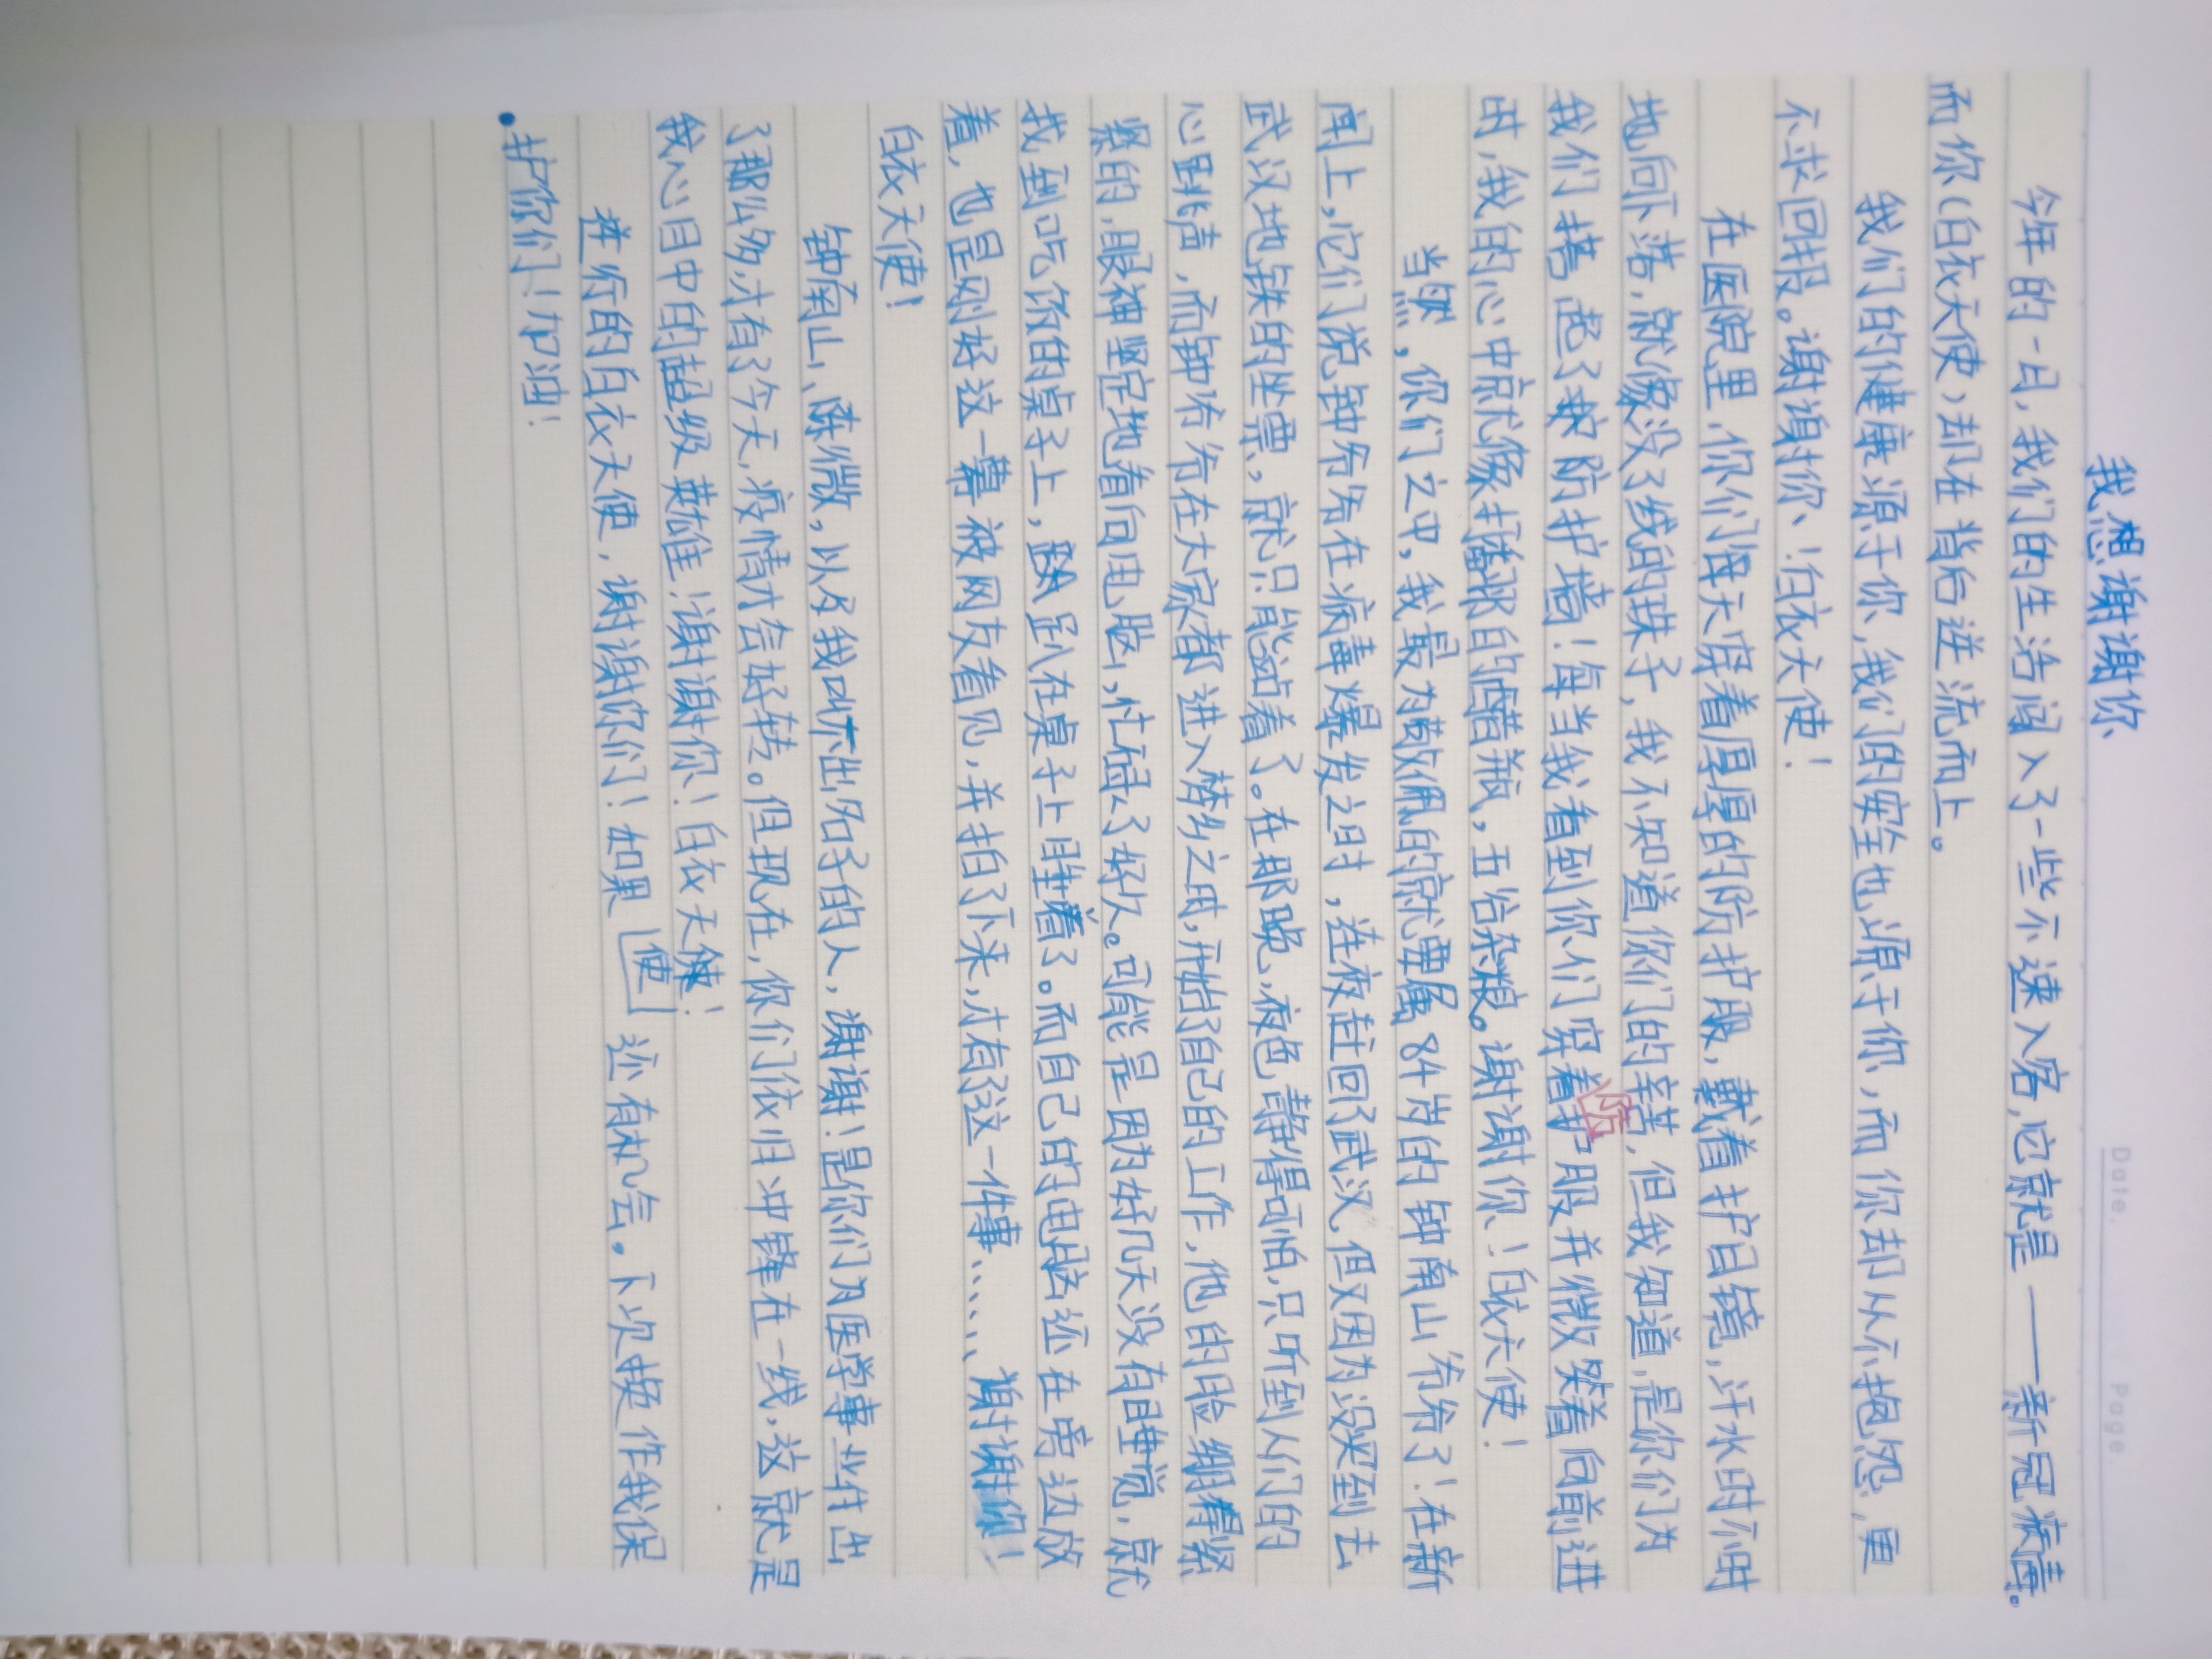 Date.    Page.
我想谢谢你
今年的一月,我们的生活闯入了一些不速入客,它就是——新冠病毒。
而你(白衣天使)却在背后逆流而上。
我们的健康源于你,我们的安全也源于你,而你却从不抱怨,更
不求回报。谢谢你!白衣天使!
在医院里,你们每天穿着厚厚的防护服,戴着护目镜,汗水时不时
地向下落,就像没了线的珠子,我不知道你们的辛苦,但我知道,是你们为
我们搭起了防护墙!每当我看到你们穿着防护服并微笑着向前进
时,我的心中就像打翻的醋瓶,五谷杂粮。谢谢你!白衣天使!
当然,你们之中,我最为敬佩的就要属84岁的钟南山爷爷了!在新
闻上,它们说钟爷爷在病毒爆发之时,连夜赶回了武汉,但又因为没买到去
武汉地铁的坐票,就只能站着了。在那晚,夜色静得可怕,只听到人们的
心跳声,而钟爷爷在大家都进入梦乡之时,开始了自己的工作,他的脸绷得紧
紧的,眼神坚定地看向电脑,忙碌了好久。可能是因为好几天没有睡觉,就
找到吃饭的桌子上,趴在桌子上睡着了。而自己的电脑还在旁边放
着,也是刚好这一幕被网友看见,并拍了下来,才有了这一件事……谢谢你!
白衣天使!
钟南山、陈微,以及我叫不出名子的人,谢谢!是你们为医学事业付出
了那么多,才有了今天,疫情才会好转。但现在,你们依旧冲锋在一线,这就是
我心目中的超级英雄!谢谢你!白衣天使!
逆行的白衣天使,谢谢你们!如果 使 还有机会。下次换作我保
护你们!加油!